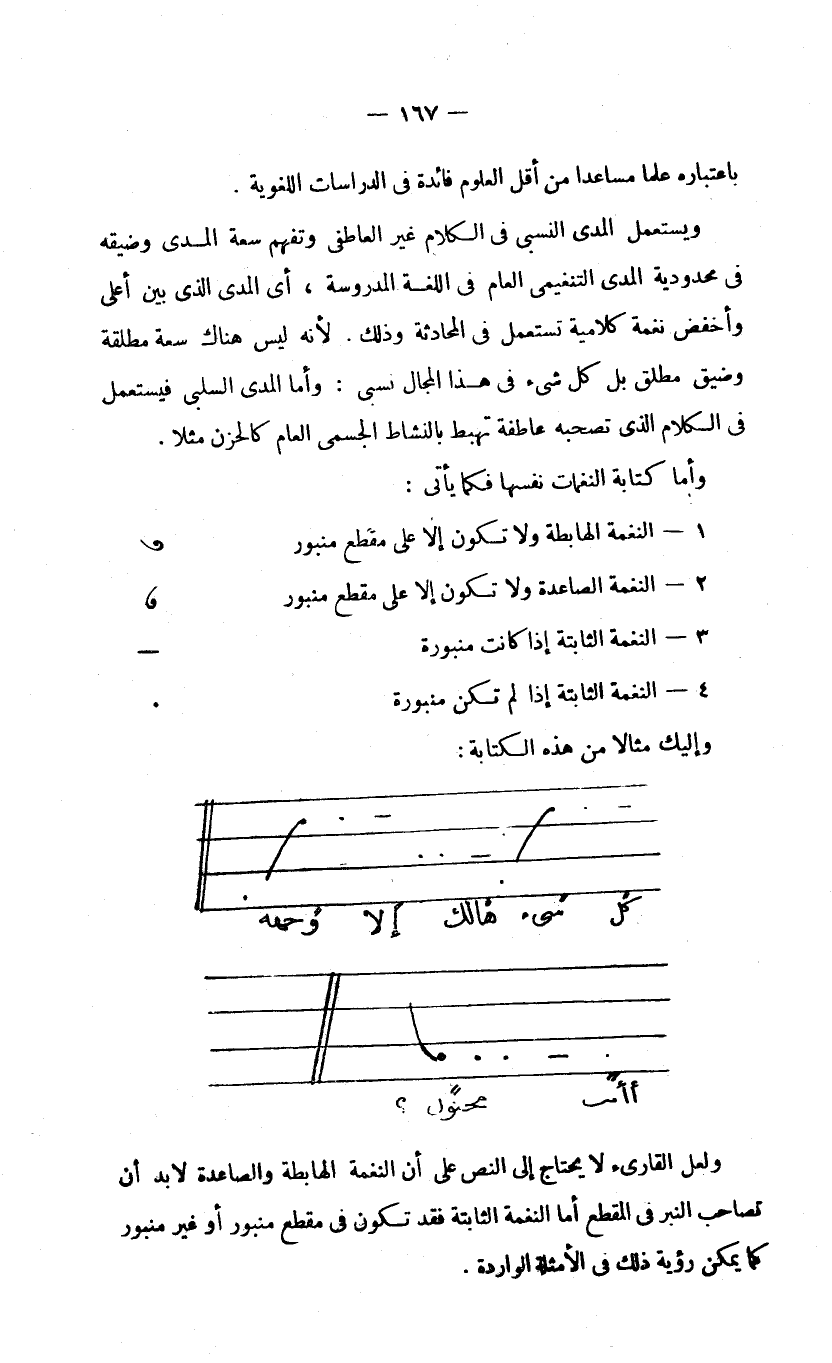 — ١٦٧ —
باعتباره علما مساعدا من أقل العلوم فائدة فى الدراسات اللغوية .
ويستعمل المدى النسبى فى الكلام غير العاطفى وتفهم سعة المدى وضيقه
فى محدودية المدى التنغيمى العام فى اللغة المدروسة ، أى المدى الذى بين أعلى
وأخفض نغمة كلامية تستعمل فى المحادثة وذلك . لأنه ليس هناك سعة مطلقة
وضيق مطلق بل كل شىء فى هذا المجال نسبى : وأما المدى السلبى فيستعمل
فى الكلام الذى تصحبه عاطفة تهبط بالنشاط الجسمى العام كالحزن مثلا .
وأما كتابة النغمات نفسها فكما يأتى :
١ — النغمة الهابطة ولا تكون إلا على مقطع منبور
٢ — النغمة الصاعدة ولا تكون إلا على مقطع منبور
٣ — النغمة الثابتة إذا كانت منبورة —
٤ — النغمة الثابتة إذا لم تكن منبورة .
وإليك مثالا من هذه الكتابة :
كُل شىء هالك إلا وجهه
أأنت مجنون ؟
ولعل القارىء لا يحتاج إلى النص على أن النغمة الهابطة والصاعدة لابد أن
تصاحب النبر فى المقطع أما النغمة الثابتة فقد تكون فى مقطع منبور أو غير منبور
كما يمكن رؤية ذلك فى الأمثلة الواردة .